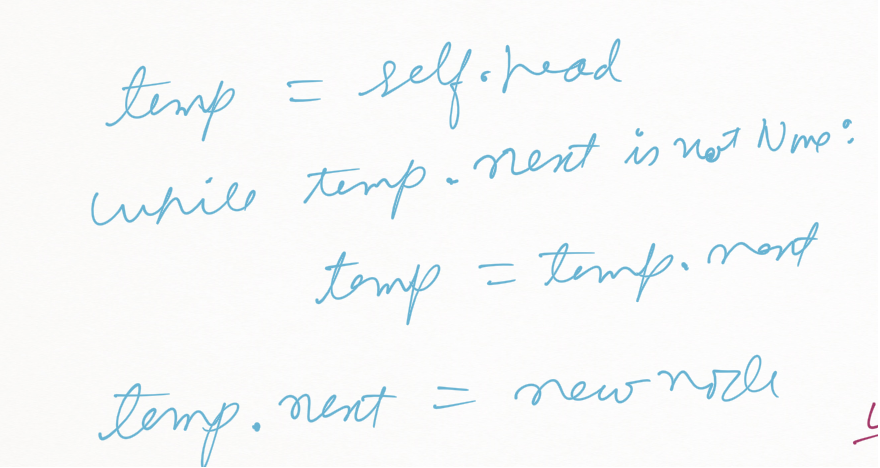 temp = self.head
while temp.next is not None:
temp = temp.next
temp.next = newnode